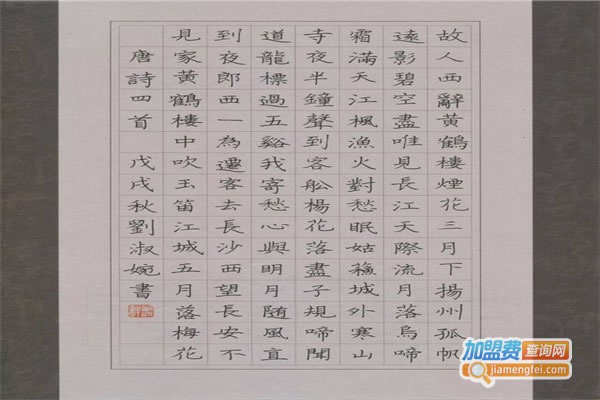 故人西辭黃鶴樓煙花三月下揚州孤帆
遠影碧空盡唯見長江天際流月落烏啼
霜滿天江楓漁火對愁眠姑蘓城外寒山
寺夜半鐘聲到客舩楊花落盡子規啼聞
道龍標過五谿我寄愁心與明月随風直
到夜郎西一為遷客去長沙西望長安不
見家黃鶴樓中吹玉笛江城五月落梅花
唐詩四首 戊戌秋劉淑婉書
加盟费查询网
jiamengfei.com